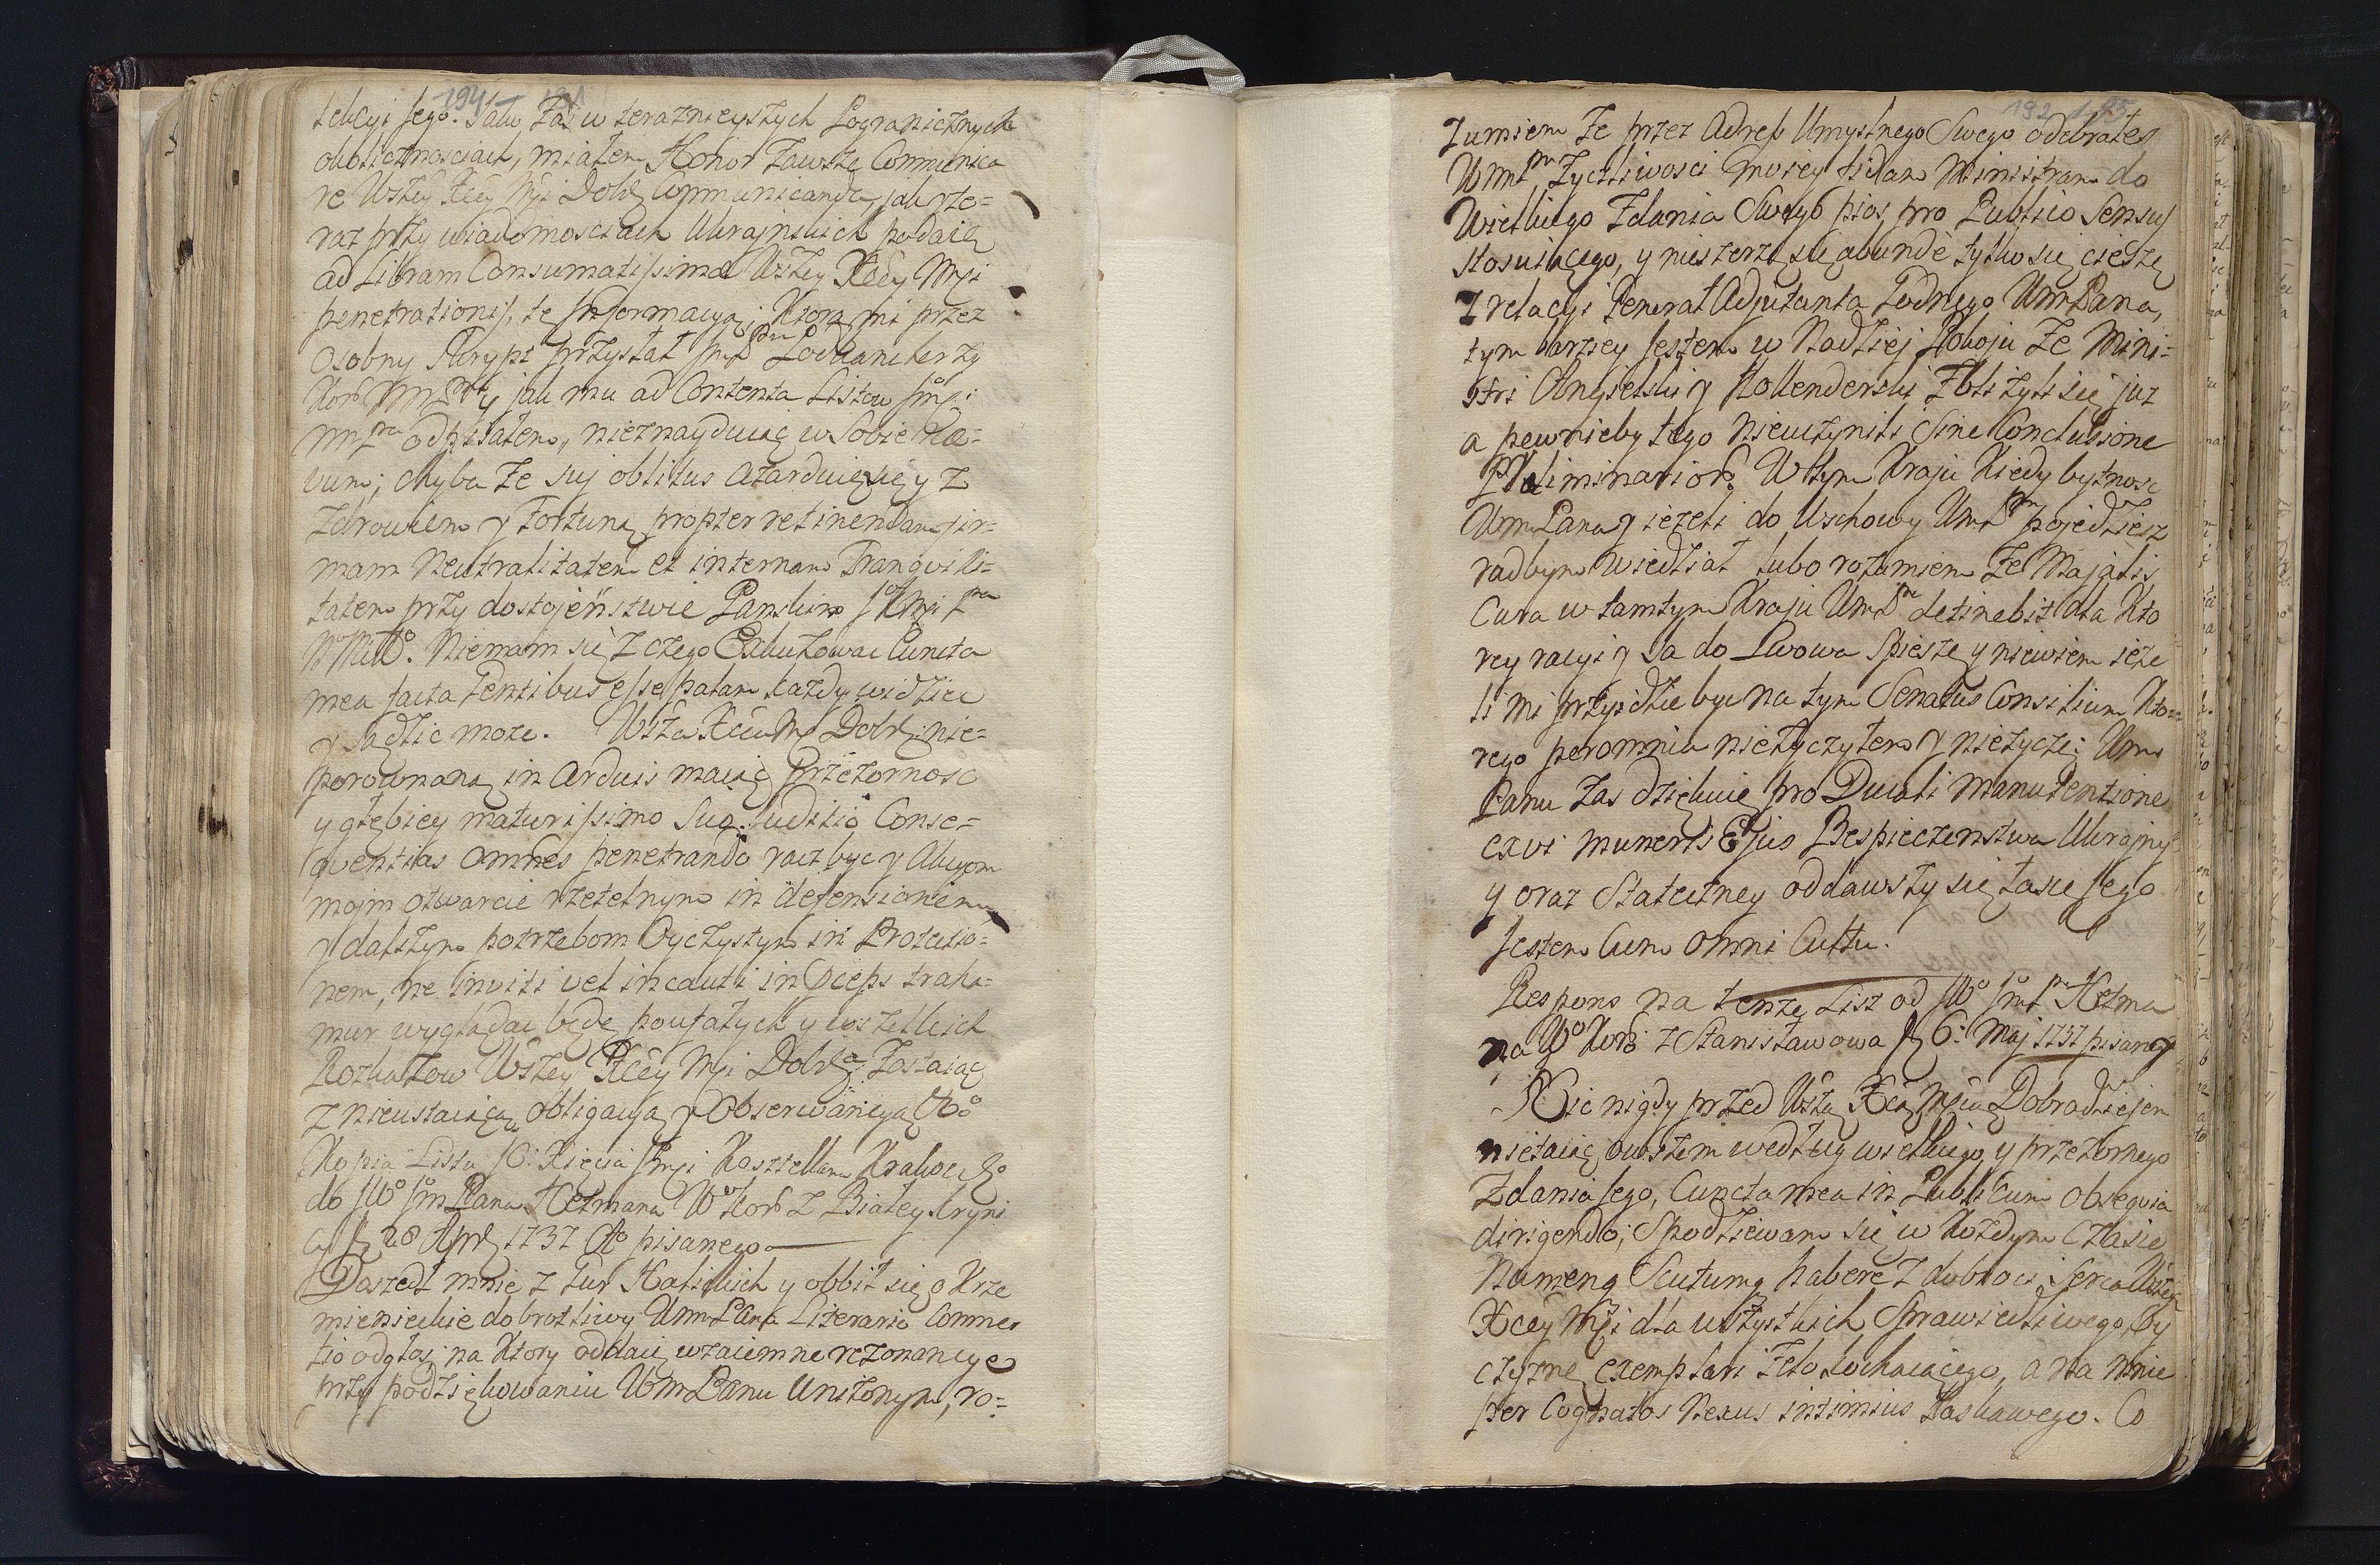 194 191
tekcyi Jego. Jako Zaś w teraznieyszych Pogranicznych
okolicznosciach, miałem Honor Zawsze Communica
re Wszey Xcey Mci Dobr Communicanda, jak y te=
raz przy wiadomosciach Ukrajnskich podaię
ad Libram Consumatissimae Wszey Xcey Mci
penetrationis, tę Informacyą, Ktorą mi przez
osobny Skrypt przysłał Podkanclerzy
Kor y jak mu ad Contenta Listow
odpisałem, nieznayduiąc w Sobie Nae=
vum; chyba Ze sui oblitus azarduię się y z
Zdrowiem y Fortuną propter retinendam fir=
mam Neutralitatem et internam Tranqvilli=
tatem przy dostojeństwie Pańskim
Niemam się z czego Exkuzowac Cuncta
mea facta Gentibus esse palam Każdy widziec
y sądzic moze. Wsza Xca Mc Dobr: nie=
porownaną in Arduis maiąc Przezornosc
y głębiey maturissimo Suo Juditio Conse=
qventias omnes penetrando racz byc y Akcyom
mojm otwarcie rzetelnym in defensionem
y dalszym potrzebom Oyczystym in Protectio=
nem, ne inviti vel incauti in Pceps traha=
mur wyglądac będę poufałych y wszelkich
Rozkazow Wszey Xcey Mci Dobrą Zostaiąc
z nieustaiącą obligacyą y Obserwancyą
Kopia Listu JO: Xięcia Jmci Kasztellana Krakow
do JWo Jm Pana Hetmana Wo Kor z Białey Kryni
cy 28 Apr 1737 Ao pisanego
Doszedł mnie z Gur Halickich y obbił się o Krze
mienieckie dobrotliwy Wm Pana Literario Comme
tio odgłos, na Ktory oddaię wzaiemne rezonancye
przy podziękowaniu Wm Panu Uniżonym, ro=
192 195
zumiem Ze przez Adress Umyslnego Swego odebrałeś
Zyczliwosci moiey fidam Ministram do
Wielkiego Zdania Swego pios pro Publico Sensus
stosuiącego, y nieszerzę się abunde tylko się cieszę
z relacyi General Adjutanta Godnego Wm Pana,
tym barziey Jestem w Nadziej Pokoju Ze Mini=
stri Angielski y Hollenderski Zbliżyli się juz
a pewnieby tego nieuczynili Sine Conclusione
Praeliminarior. W tym Kraju Kiedy bytnosc
Wm Pana y ieżeli do Wschowy pojedziesz
radbym wiedział lubo rozumiem Ze Majatis
Cura w tamtym Kraju detinebit dla Kto
rey racyi y Ja do Lwowa Spieszę y niewiem ieże
li mi przyidzie byc na tym Senatus Consilium Kto=
rego per omnia nieżyczyłem y nieżyczę; Wm
Panu zas dziękuię pro Ducali manutentione
ex vi muneris Ejus Bespieczenstwa Ukrajny
y oraz Statecżney oddawszy się łasce Jego
Jestem Cum omni Cultu.
Respons na tenze List od JWo Hetma
na Wo Kor z Stanisławowa 6: Maj 1737 pisany
Nic nigdy przed Wszą Xcą Mcią Dobrodziejem
nietaiąc, owszem według wielkiego, y przezornego
Zdania Jego, Cuncta mea in Publicum obsequia
dirigendo; Spodziewam się w Kożdym Czasie
Numenq Scutumq habere z dobroci Serca Wszey
Xcey Mci dla wszystkich Sprawiedliwego, Oy
czyznę exemplari Zelo kochaiącego, a na mnie
per Cognatos Nexus intimius Łaskawego. Co